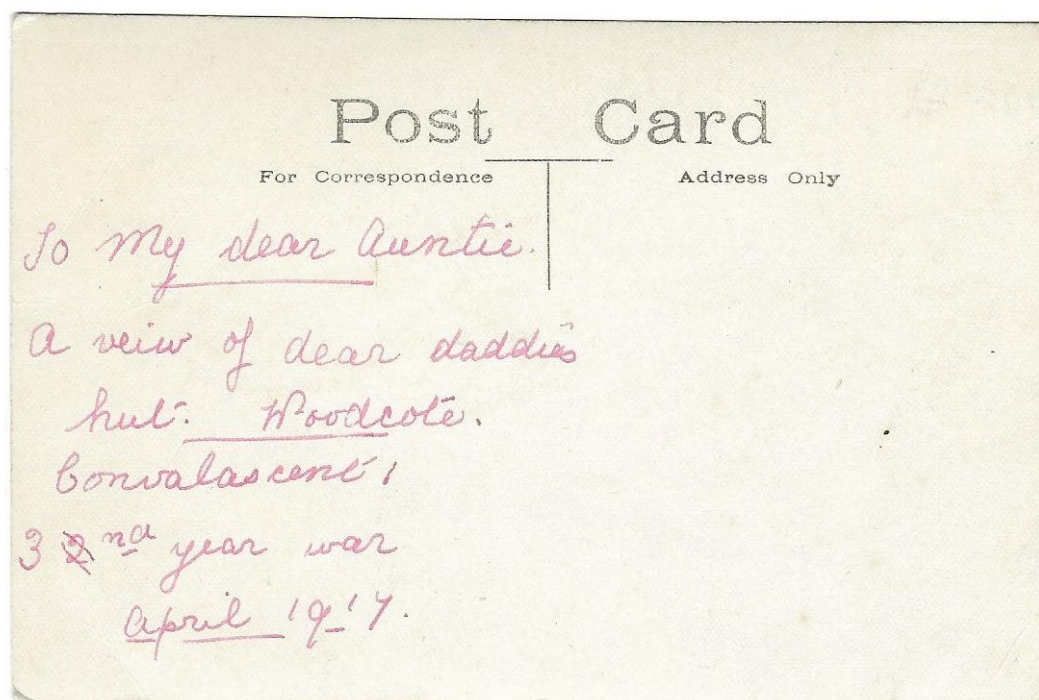 Post Card
For Correspondence Address Only
To My dear Auntie.
A veiw of dear daddies
hut. Woodcote.
Convalascent,
3 2 nd year war
April 1917.